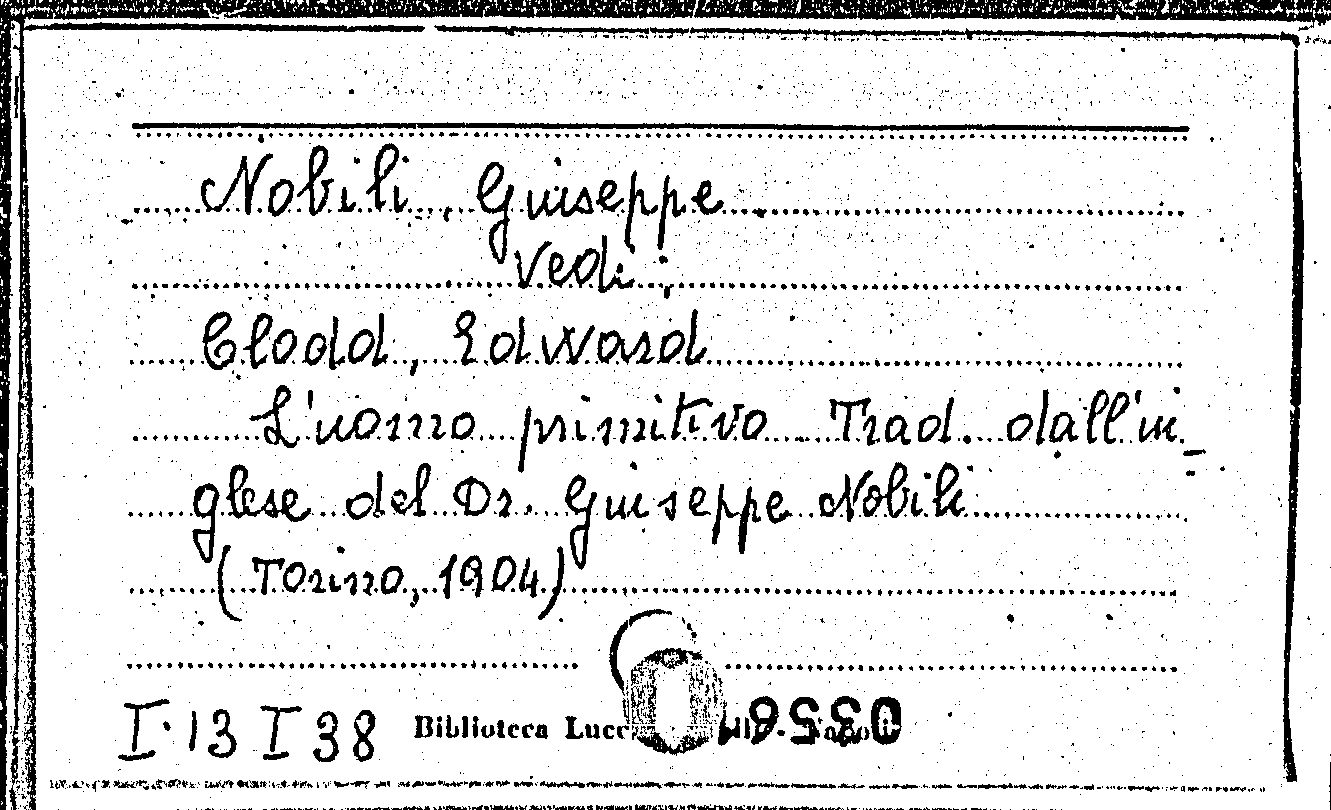 Nobili, Giuseppe
Vedi:
Clodd, Edward
L'uomo primitivo Trad. dall'in=
glese del Dr. Giuseppe Nobili
(Torino, 1904)
I.13 I 38 Biblioteca